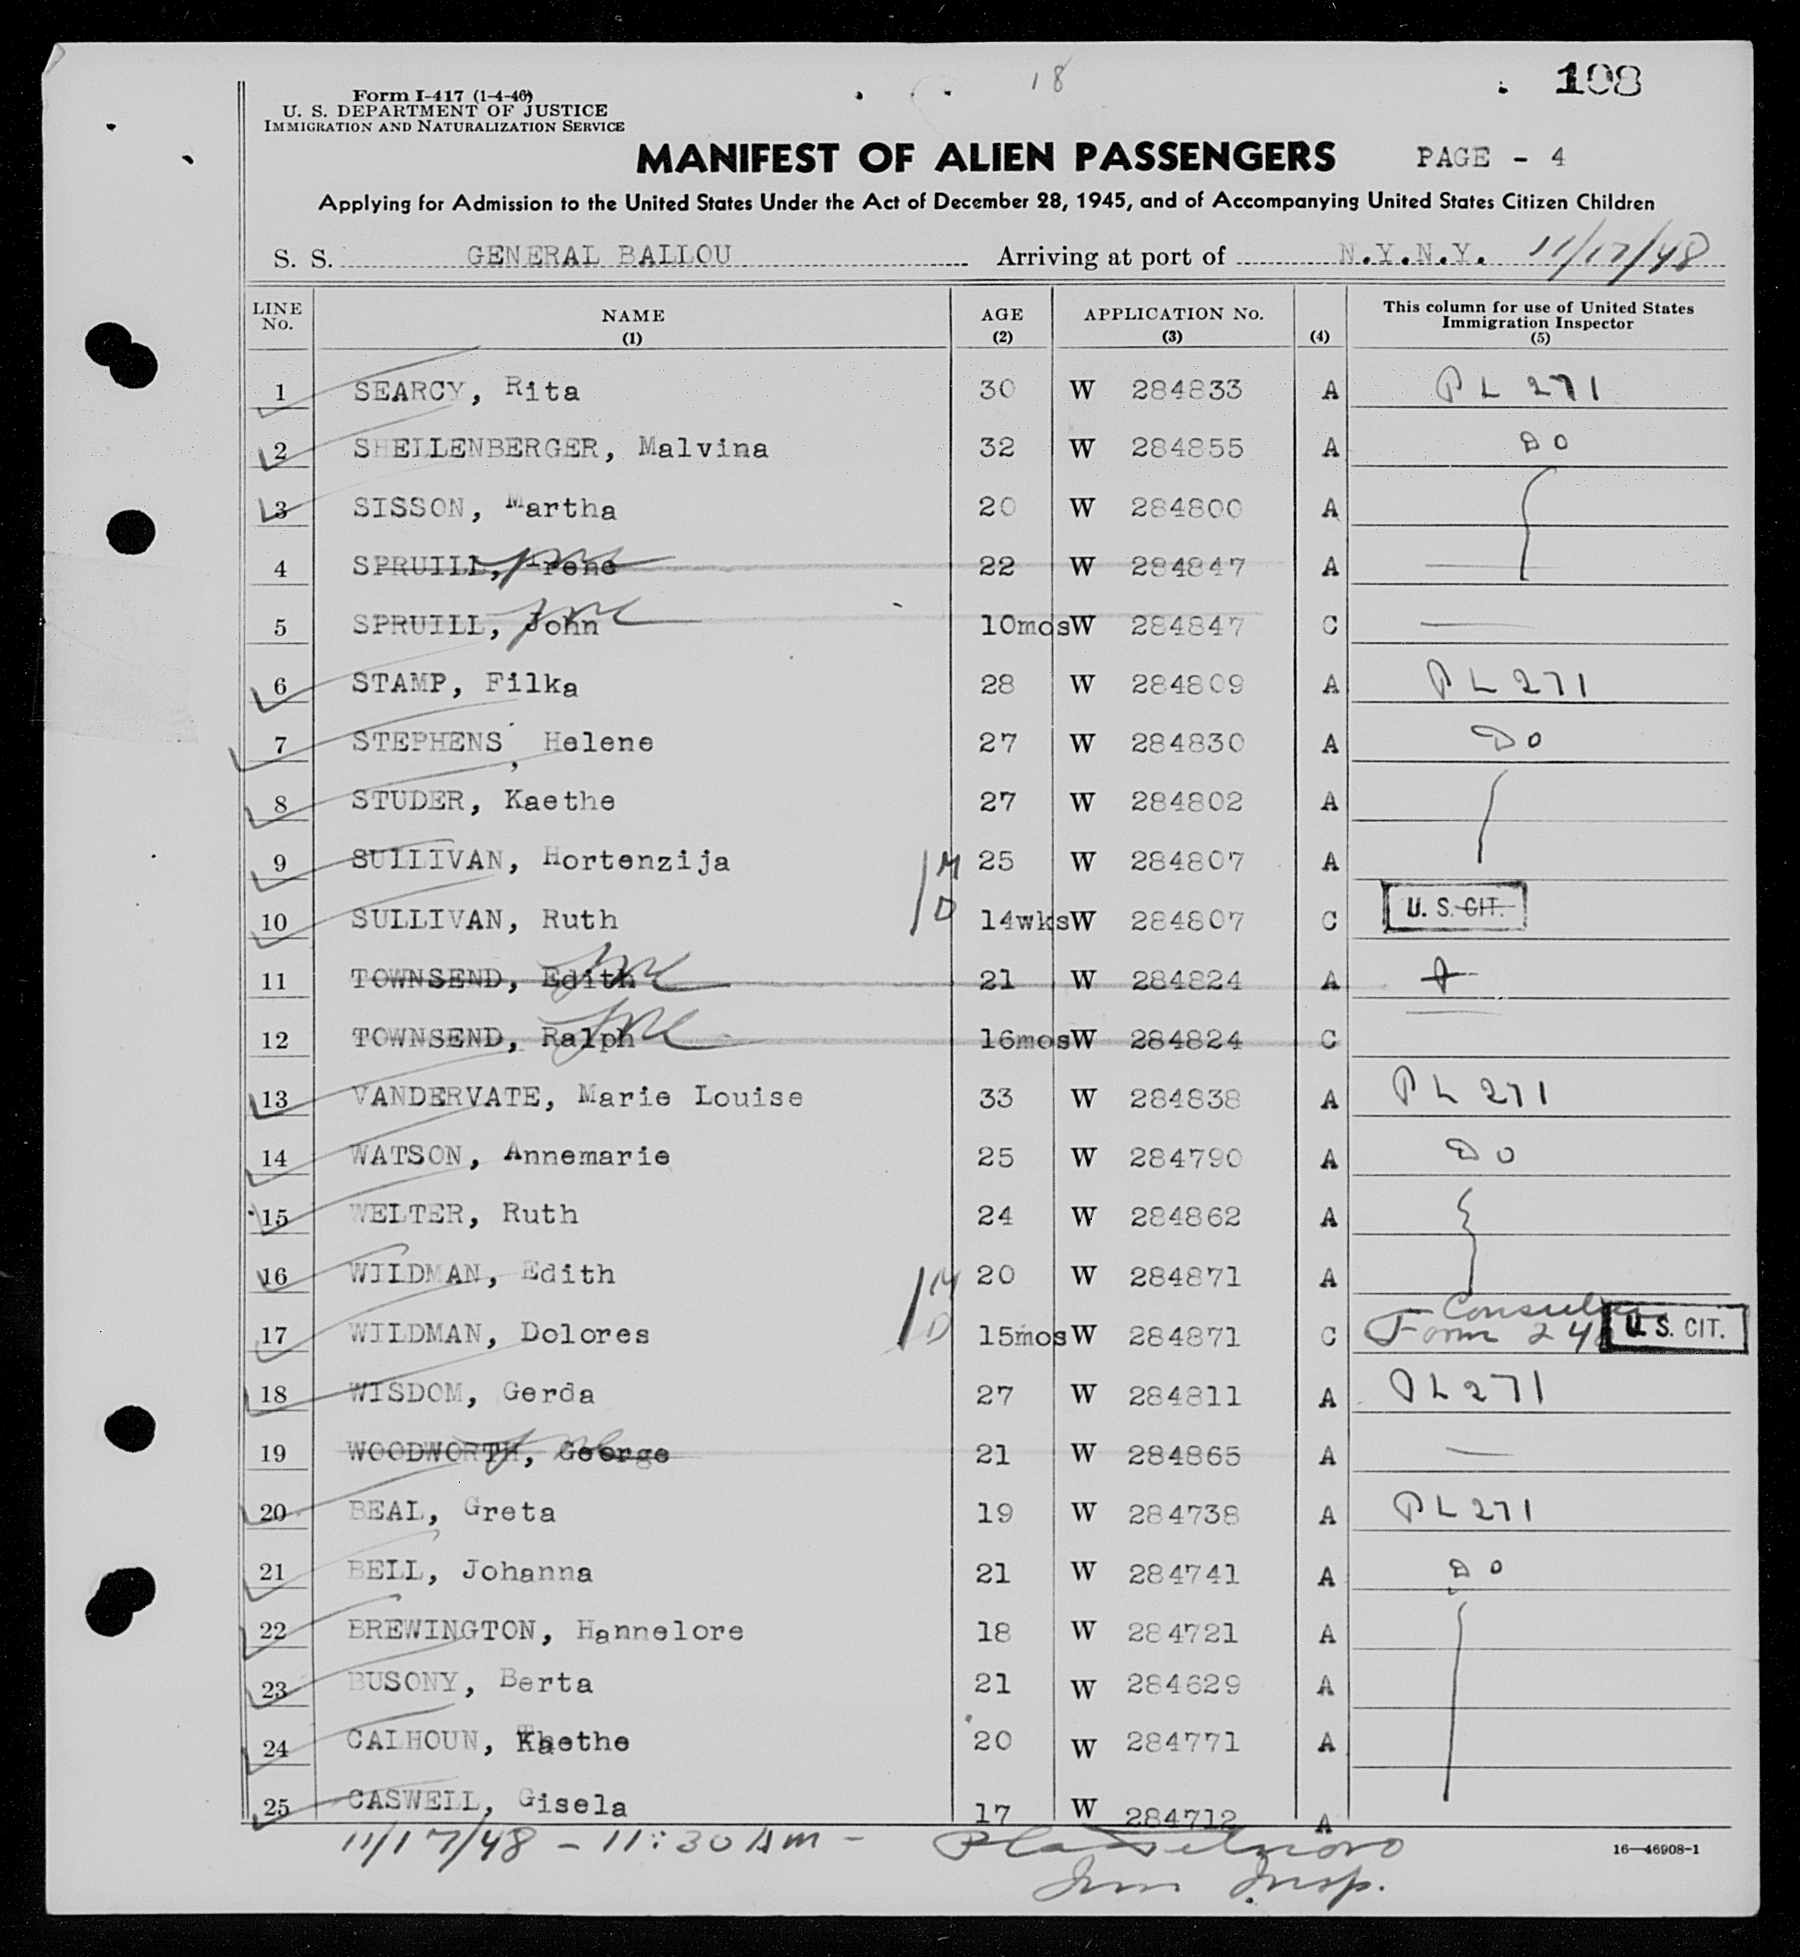 18
108
Form I-417 (1-4-46)
U. S. DEPARTMENT OF JUSTICE
IMMIGRATION AND NATURALIZATION SERVICE
MANIFEST OF ALIEN PASSENGERS PAGE - 4
Applying for Admission to the United States Under the Act of December 28, 1945, and of Accompanying United States Citizen Children
S. S. GENERAL BALLOU Arriving at port of N.Y.N.Y. 11/17/48
LINE No. NAME (1) AGE (2) APPLICATION No. (3) (4) This column for use of United States Immigration Inspector (5)
1 SEARCY, Rita 30 W 284833 A PL 271
2 SHELLENBERGER, Malvina 32 W 284855 A DO
3 SISSON, Martha 20 W 284800 A
4 SPRUILL, Irene 22 W 284847 A
5 SPRUILL, John 10mos W 284847 C
6 STAMP, Filka 28 W 284809 A PL 271
7 STEPHENS, Helene 27 W 284830 A DO
8 STUDER, Kaethe 27 W 284802 A
9 SULLIVAN, Hortenzija M 25 W 284807 A
10 SULLIVAN, Ruth D 14wks W 284807 C U. S. CIT.
11 TOWNSEND, Edith 21 W 284824 A
12 TOWNSEND, Ralph 16mos W 284824 C
13 VANDERVATE, Marie Louise 33 W 284838 A PL 271
14 WATSON, Annemarie 25 W 284790 A DO
15 WELTER, Ruth 24 W 284862 A
16 WILDMAN, Edith M 20 W 284871 A
17 WILDMAN, Dolores D 15mos W 284871 C Consular Form 240 U. S. CIT.
18 WISDOM, Gerda 27 W 284811 A PL 271
19 WOODWORTH, George 21 W 284865 A
20 BEAL, Greta 19 W 284738 A PL 271
21 BELL, Johanna 21 W 284741 A DO
22 BREWINGTON, Hannelore 18 W 284721 A
23 BUSONY, Berta 21 W 284629 A
24 CALHOUN, Kaethe 20 W 284771 A
25 CASWELL, Gisela 17 W 284712 A
11/17/48 - 11:30 AM -
Imm Insp.
16—46908-1